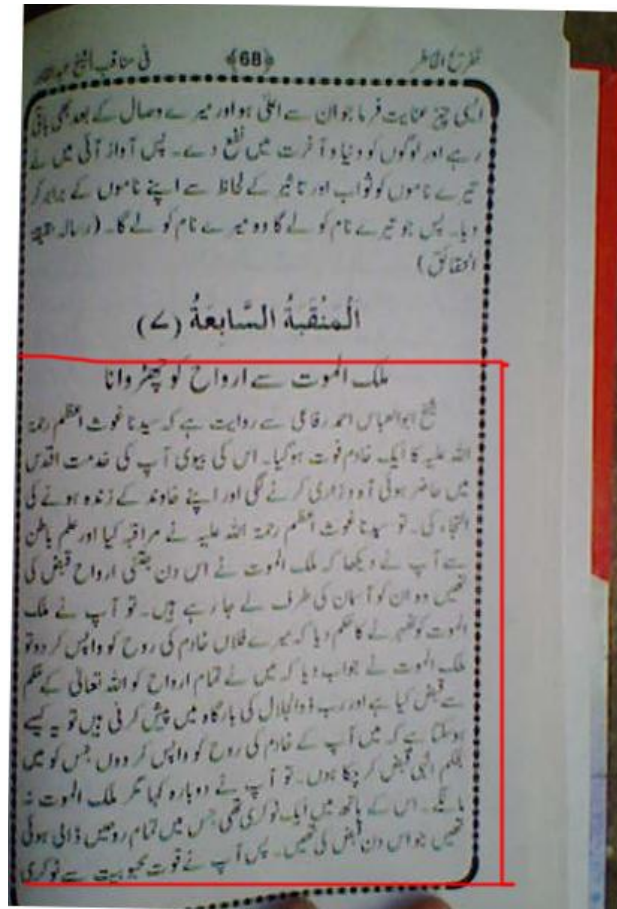 تفریح الخاطر ﴿68﴾ فی مناقب الشیخ عبدالقادر
ایسی چیز عنایت فرما جو ان سے اعلیٰ ہو اور میرے وصال کے بعد بھی باقی
رہے اور لوگوں کو دنیا و آخرت میں نفع دے۔ پس آواز آئی میں نے
تیرے ناموں کو ثواب اور تاثیر کے لحاظ سے اپنے ناموں کے برابر کر
دیا۔ پس جو تیرے نام کو لے گا وہ میرے نام کو لے گا۔ (رسالہ حقیقۃ
الحقائق)
اَلْمَنْقَبَةُ السَّابِعَةُ (۷)
ملک الموت سے ارواح کو چھڑوانا
شیخ ابوالعباس احمد رفاعی سے روایت ہے کہ سیدنا غوث اعظم رحمۃ
اللہ علیہ کا ایک خادم فوت ہوگیا۔ اس کی بیوی آپ کی خدمت اقدس
میں حاضر ہوئی آہ و زاری کرنے لگی اور اپنے خاوند کے زندہ ہونے کی
التجاء کی۔ تو سیدنا غوث اعظم رحمۃ اللہ علیہ نے مراقبہ کیا اور علم باطن
سے آپ نے دیکھا کہ ملک الموت نے اس دن جتنی ارواح قبض کی
تھیں وہ ان کو آسمان کی طرف لے جا رہے ہیں۔ تو آپ نے ملک
الموت کو ٹھہرنے کا حکم دیا کہ میرے فلاں خادم کی روح کو واپس کر دو تو
ملک الموت نے جواب دیا کہ میں نے تمام ارواح کو اللہ تعالیٰ کے حکم
سے قبض کیا ہے اور رب ذوالجلال کی بارگاہ میں پیش کرنی ہیں تو یہ کیسے
ہوسکتا ہے کہ میں آپ کے خادم کی روح کو واپس کر دوں جس کو میں
بحکم الہی قبض کر چکا ہوں۔ تو آپ نے دوبارہ کہا مگر ملک الموت نہ
مانے۔ اس کے ہاتھ میں ایک ٹوکری تھی جس میں تمام روحیں ڈالی ہوئی
تھیں جو اس دن قبض کی تھیں۔ پس آپ نے قوت محبوبیت سے ٹوکری